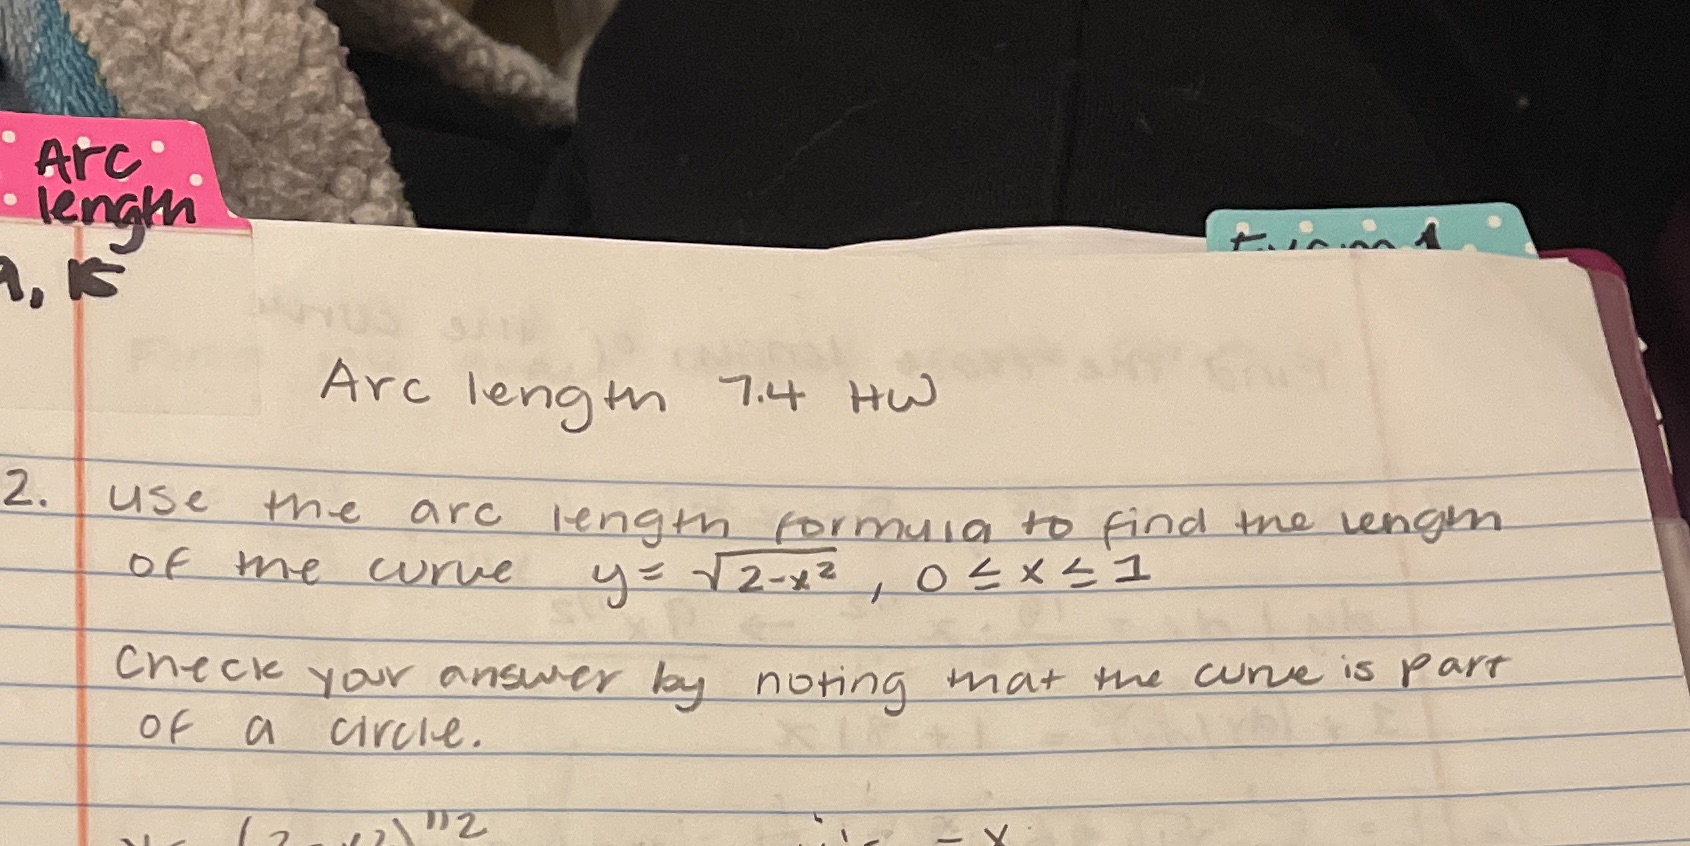 Arc
length
9, 15
Arc length 7.4 HW
2. use the arc length formula to find the length
of the curve y = √2-x² , 0 ≤ x ≤ 1
Check your answer by noting that the curve is part
of a circle.